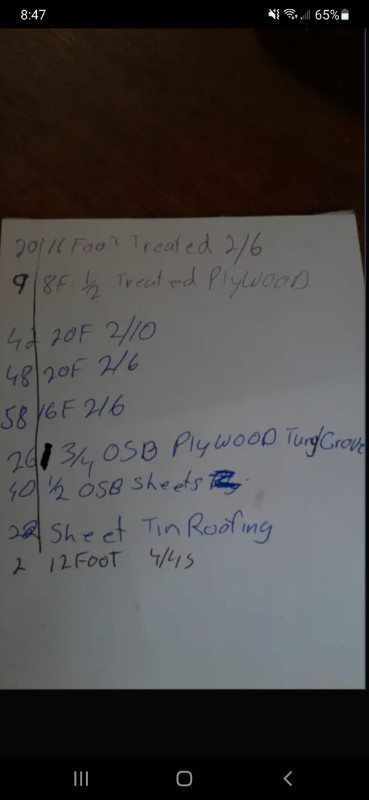 8:47 65%
20 16 Foot Treated 2/6
9 8F. 1/2 Treated Plywood
42 20F 2/10
48 20F 2/6
58 16F 2/6
26 3/4 OSB Plywood Tung/Grove
40 1/2 OSB Sheets
Sheet Tin Roofing
2 12 FOOT 4/4s